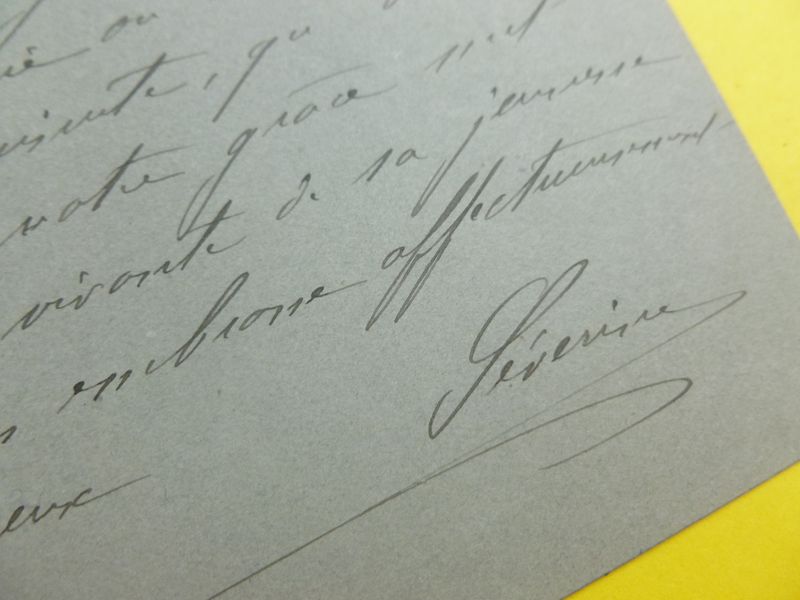 ou
, qu
votre grâce
vivante de sa jeunesse
embrasse affectueusement
Séverine
eux